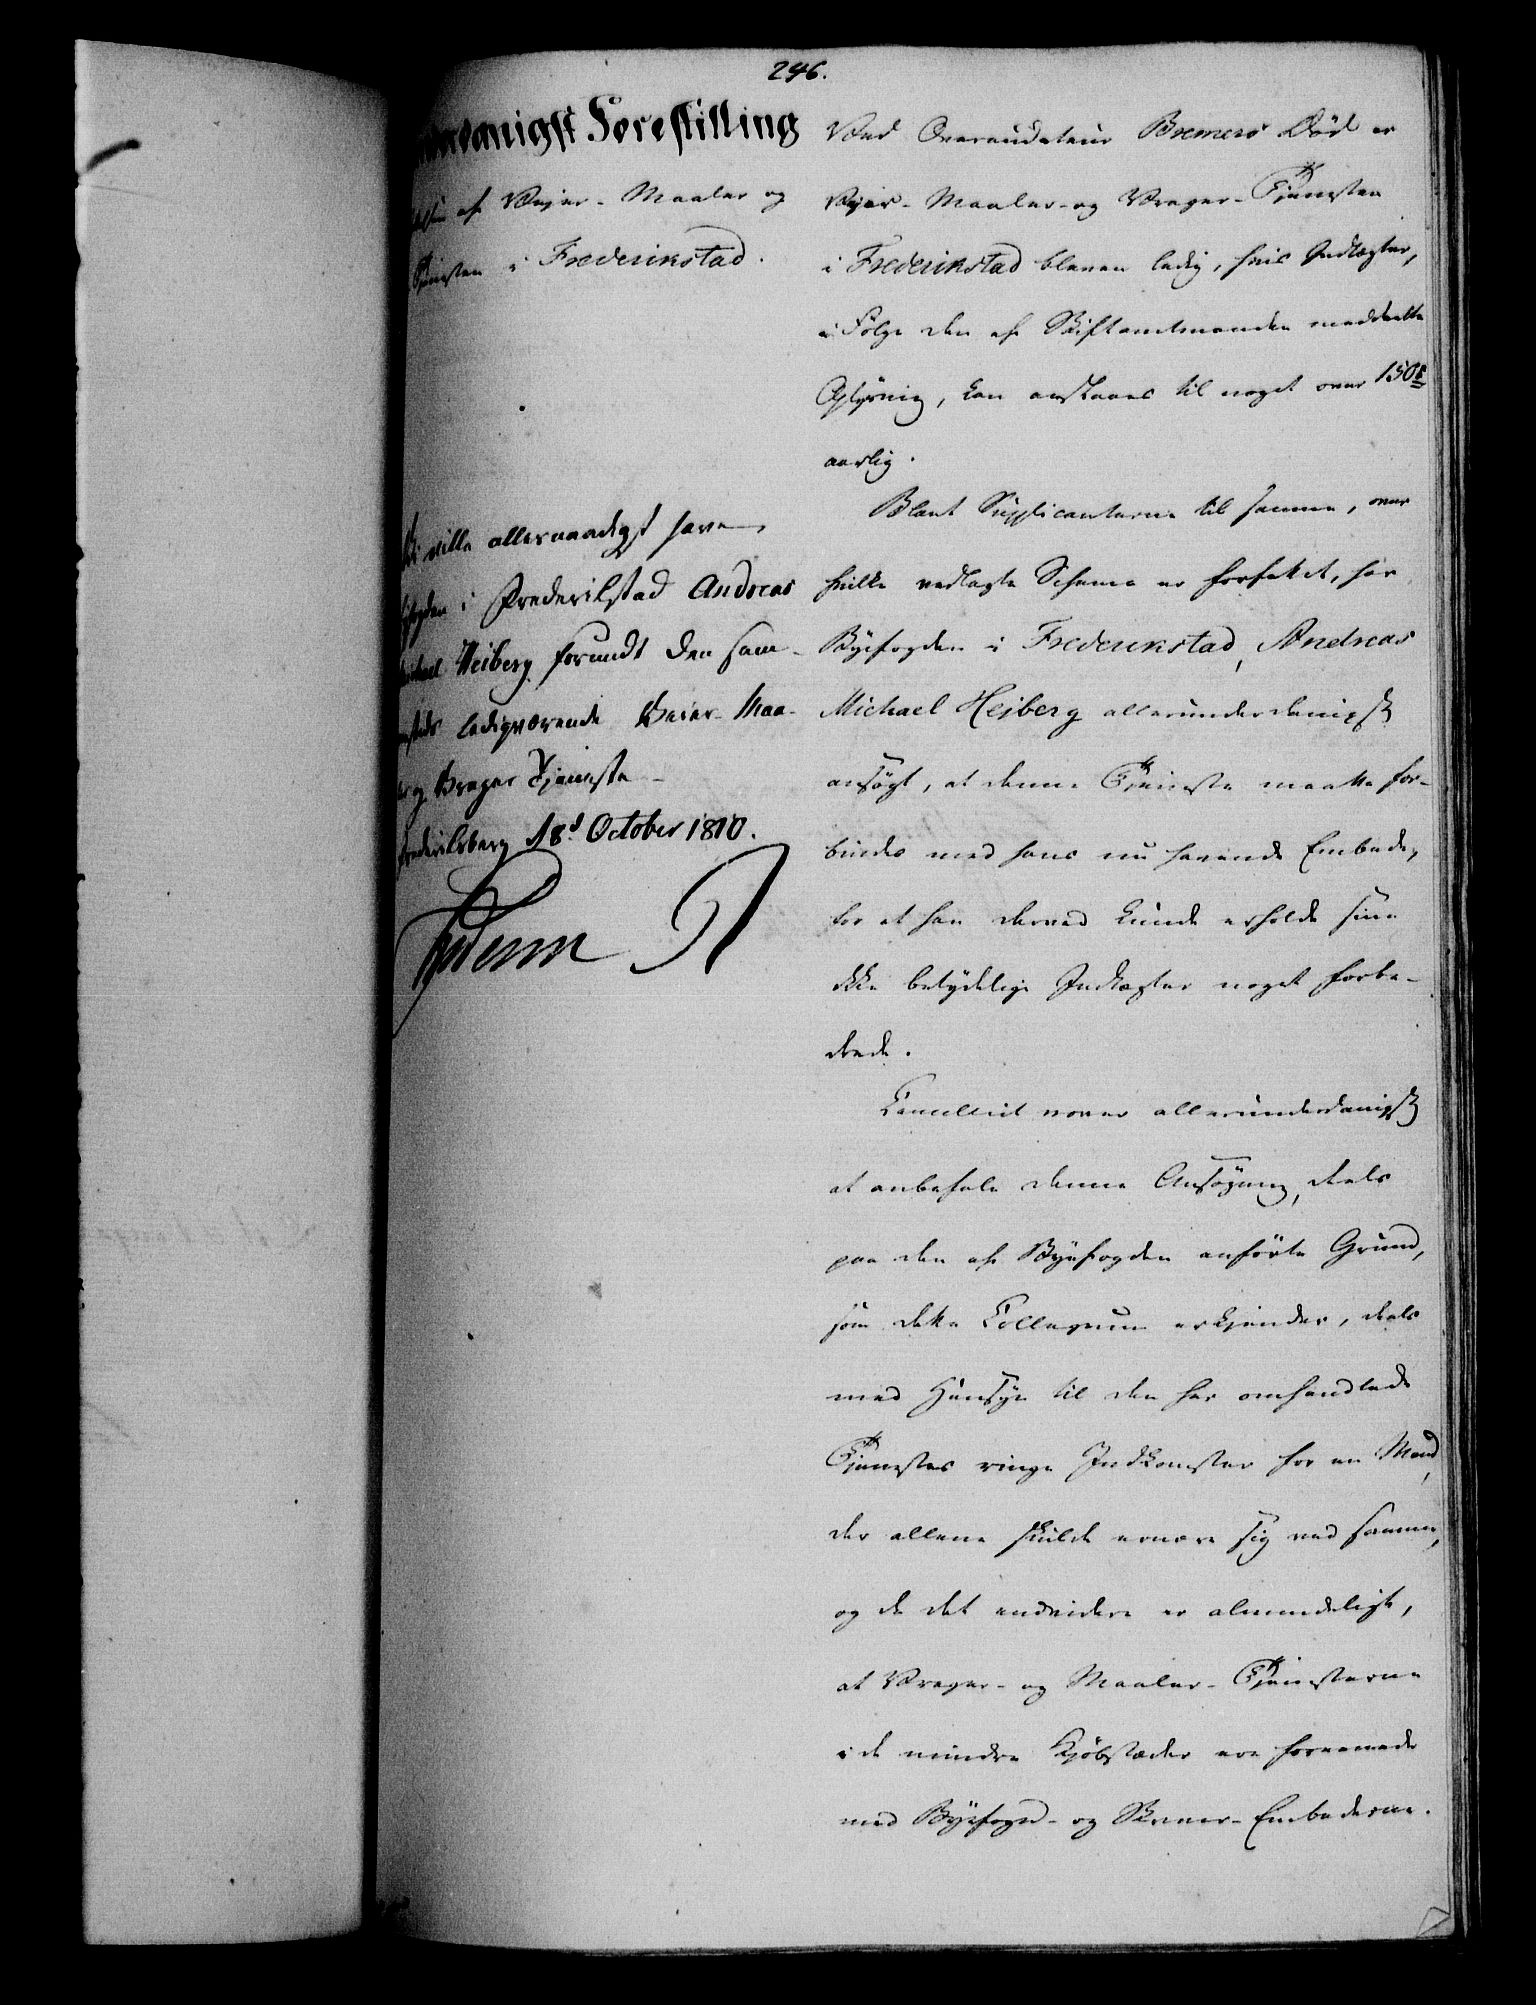 246.
underdanigst Forestilling
af Vejer- Maaler og
Tjenesten i Frederikstad.
Vi ville allernaadigst have
Byefogden i Frederikstad Andreas
Michael Heiberg forundt den sam-
mesteds ledigværende Veier- Maa-
ler og Vrager Tjeneste
Frederiksberg d 18d October 1810.
Frederik R
Ved Overauditeur Bremers Död er
Vejer- Maaler- og Vrager-Tjenesten
i Frederikstad bleven ledig, hvis Indtægter,
i Fölge den af Stiftamtmanden meddeelte
Oplysning, kan anslaaes til noget over 150
aarlig.
Blant Supplicanterne til samme, over
hvilke vedlagte Schema er forfattet, har
Byefogden i Frederikstad, Andreas
Michael Hejberg allerunderdanigst
ansögt, at denne Tjeneste maatte for-
bindes med hans nu havende Embede,
for at han derved kunde erholde sine
ikke betydelige Indtægter noget forbe-
drede.
Cancelliet vover allerunderdanigst
at anbefale denne Ansögning, deels
paa den af Byefogden anförte Grund,
som dette Collegium erkjender, deels
med Hensyn til den her omhandlede
Tjenestes ringe Indkomster for en Mand,
der allene skulde ernære sig ved samme,
og da det endvidere er almindeligt,
at Vrager- og Maaler- Tjenesterne
i de mindre Kjöbstæder ere foreenede
med Byefoged- og Skriver-Embederne.